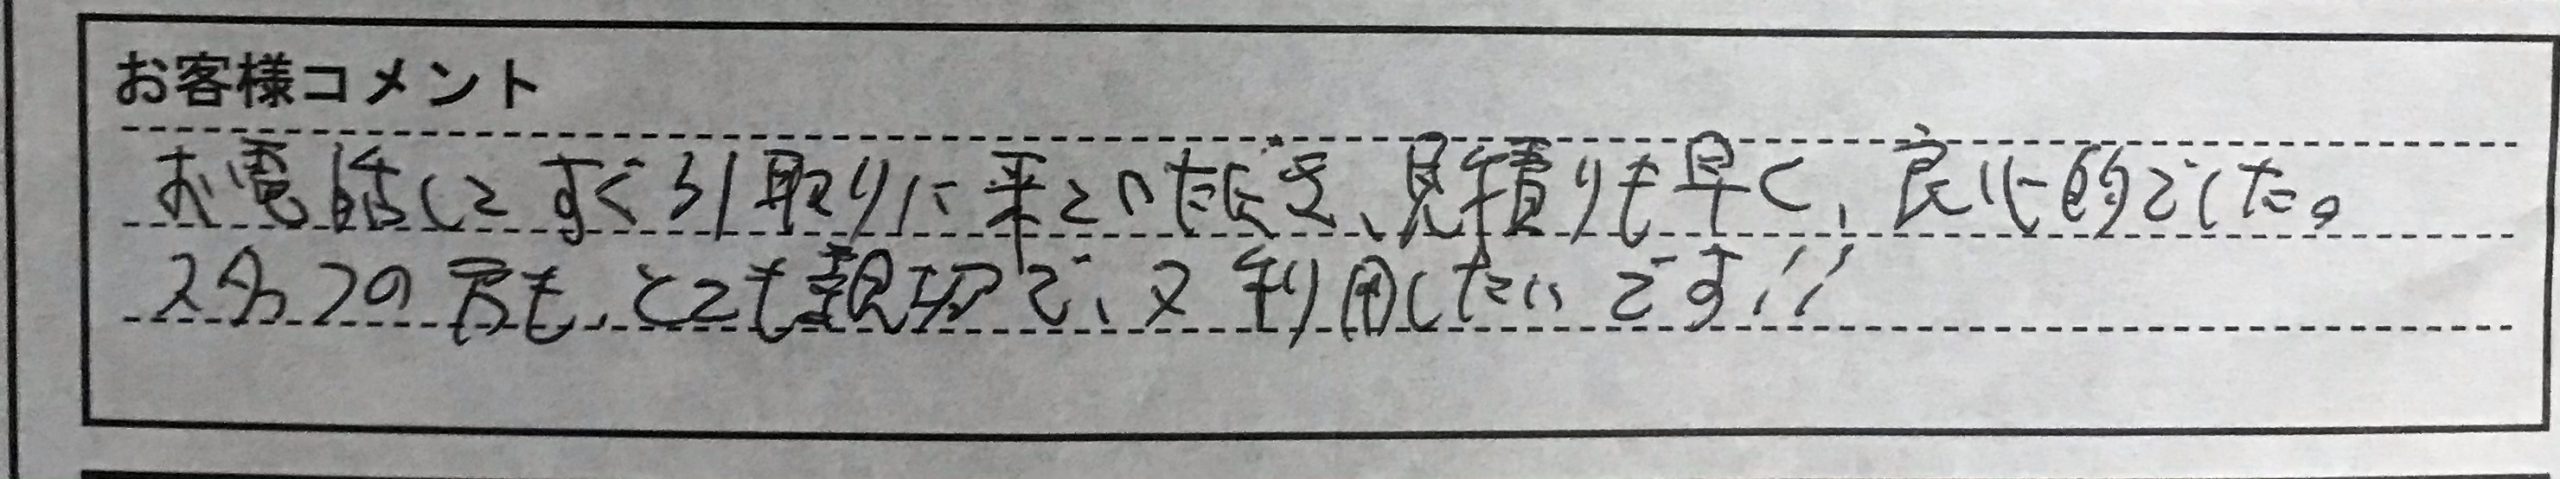 お客様コメント
お電話してすぐ引取りに来ていただき、見積りも早く、良心的でした。
スタッフの方も、とても親切で、又利用したいです!!